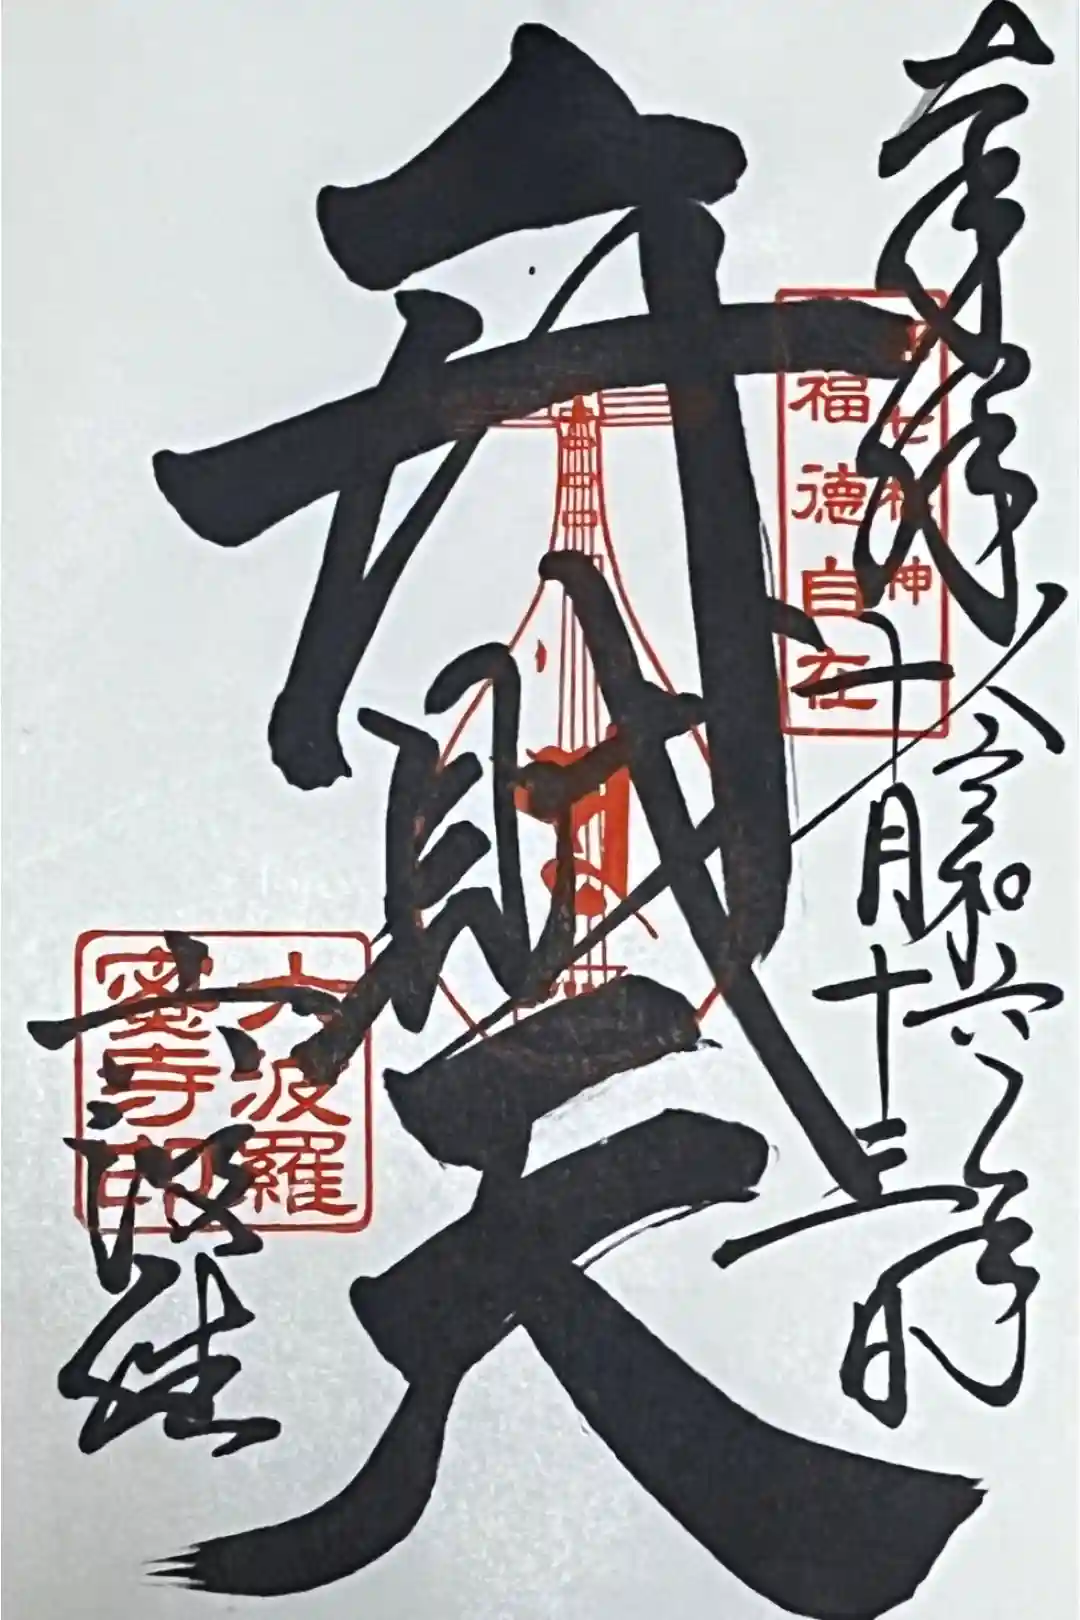 奉拝
令和六年
十月十三日
都七福神
福徳自在
弁財天
六波羅
六波羅
蜜寺印